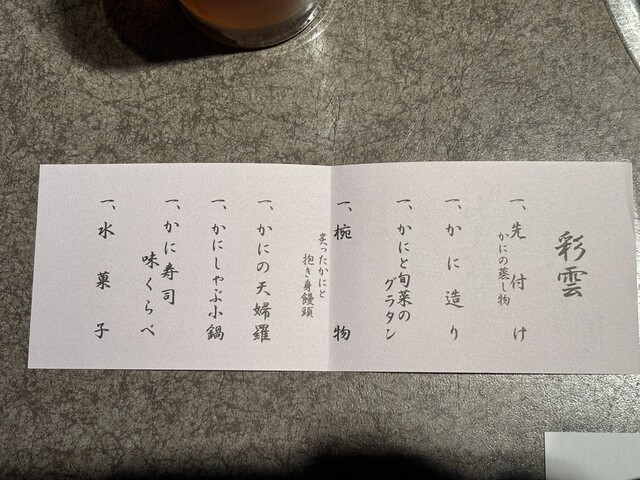 彩雲
一、先付け
かにの蒸し物
一、かに造り
一、かにと旬菜の
グラタン
一、椀物
炙ったかにと
抱き身饅頭
一、かにの天婦羅
一、かにしゃぶ小鍋
一、かに寿司
味くらべ
一、水菓子